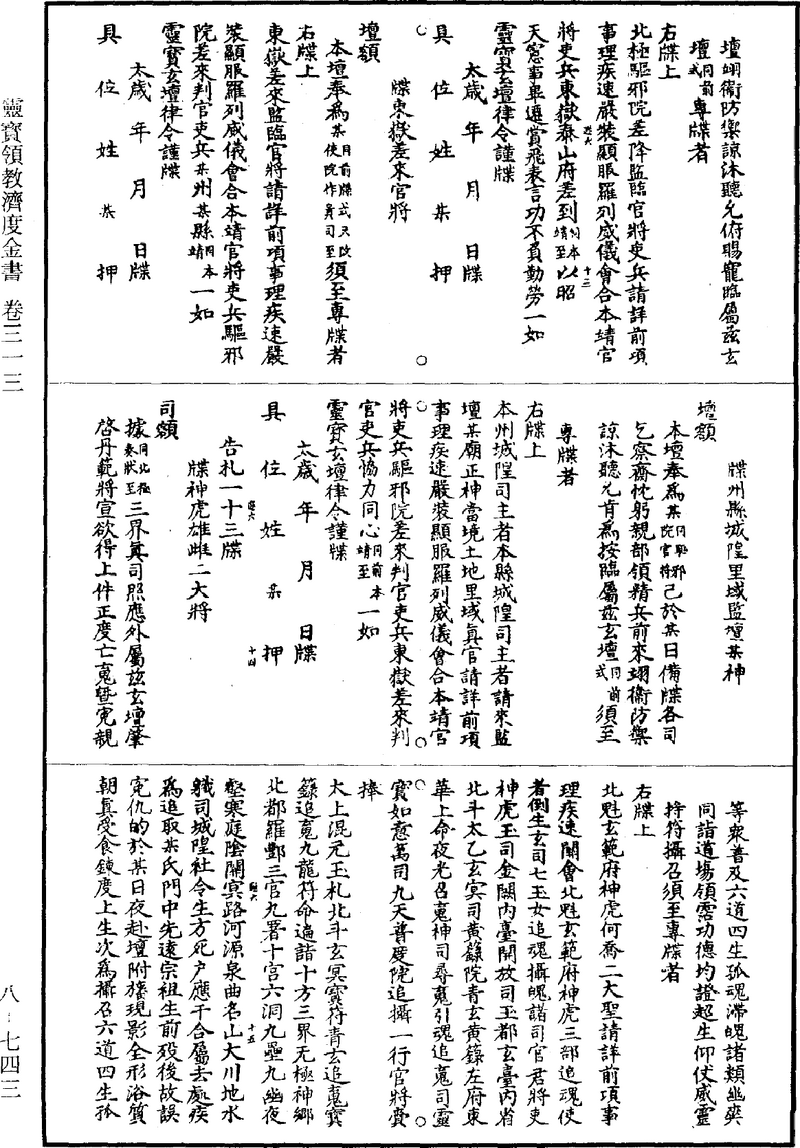 靈寶領教濟度金書 卷三一三
八－七四三
壇翊衞防禦諒沐聽允俯賜寵臨屬兹玄
壇同前式專牒者
右牒上
北極驅邪院差降監臨官將吏兵請詳前項
事理疾速嚴裝顯服羅列威儀會合本靖官
將吏兵東嶽泰山府差到同本靖至以昭
天憲事畢遷賞飛表言功不負勤勞一如
靈寶玄壇律令謹牒
太歲 年 月 日牒
具 位 姓 某 押
牒東嶽差來官將
壇額
本壇奉爲某同前牒式只改使院作身司至須至專牒者
右牒上
東嶽差來監臨官將請詳前項事理疾速嚴
裝顯服羅列威儀會合本靖官將吏兵驅邪
院差來判官吏兵某州某縣同本靖一如
靈寶玄壇律令謹牒
太歲 年 月 日牒
具 位 姓 某 押
牒州縣城隍里域監壇某神
壇額
本壇奉爲某同驅邪院官符己於某日備牒各司
乞察齋忱躬親部領精兵前來翊衞防禦
諒沐聽允肯爲按臨屬兹玄壇同前式須至
專牒者
右牒上
本州城隍司主者本縣城隍司主者請來監
壇某廟正神當境土地里域眞官請詳前項
事理疾速嚴裝顯服羅列威儀會合本靖官
將吏兵驅邪院差來判官吏兵東嶽差來判
官吏兵協力同心同前本靖至一如
靈寶玄壇律令謹牒
太歲 年 月 日牒
具 位 姓 某 押
告札一十三牒
牒神虎雄雌二大將
司額
據同北極奏狀至三界眞司照應外屬兹玄壇肇
啓丹範將宣欲得上件正度亡䰟曁寃親
等衆普及六道四生孤魂滯魄諸類幽爽
同詣道場領霑功德均證超生仰仗威靈
持符攝召須至專牒者
右牒上
北魁玄範府神虎何喬二大聖請詳前項事
理疾速關會北魁玄範府神虎三部追魂使
者倒生玄司七玉女追魂攝魄諸司官君將吏
神虎玉司金闕内臺開放司玉都玄臺内省
北斗太乙玄冥司黃籙院青玄黃籙左府東
華上命夜光召䰟神司尋䰟引魂追䰟司靈
寶如意萬司九天普度院追攝一行官將賫
捧
太上混元玉札北斗玄冥寶符青玄追䰟寶
籙追䰟九龍符命遍詣十方三界无極神鄉
北都羅酆三官九署十宮六洞九壘九幽夜
壑寒庭陰關冥路河源泉曲名山大川地水
職司城隍社令生方死户應干合屬去處疾
爲追取某氏門中先遠宗祖生前殁後故誤
寃仇的於某日夜赴壇附旛現影全形浴質
朝眞受食鍊度上生次爲攝召六道四生孤